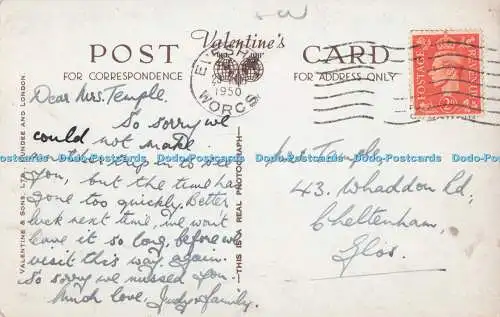 POST
Valentine's
CARD
FOR CORRESPONDENCE
FOR ADDRESS ONLY
1950
WORCS
POSTAGE
VALENTINE & SONS, LTD., DUNDEE AND LONDON.
THIS IS A REAL PHOTOGRAPH
Dear Mrs. Temple.
So sorry we
could not make
it in to see
you, but the time has
gone too quickly. Better
luck next time, we won't
leave it so long, before we
visit this way again.
So sorry we missed you.
Much love, Judy & family.
Mrs Temple,
43, Whaddon Rd;
Cheltenham,
Glos.
Dodo-Postcards Dodo-Postcards Dodo-Postcards Dodo-Postcards Dodo-Postcards Dodo-Postcards